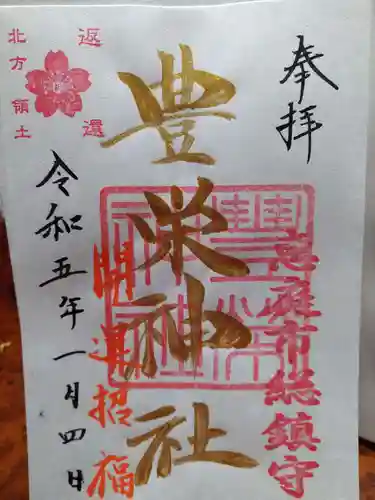 奉拝
恵庭市総鎮守
豊栄神社
開運招福
令和五年一月四日
返還
北方領土